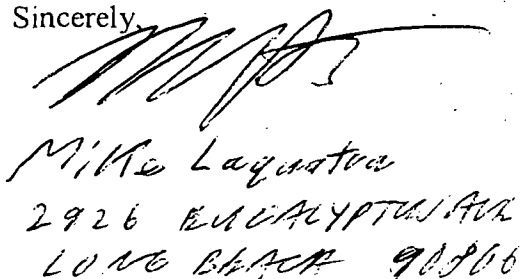 Sincerely,
Mike Laquatra
2926 EUCALYPTUS AVE
LONG BEACH 90806